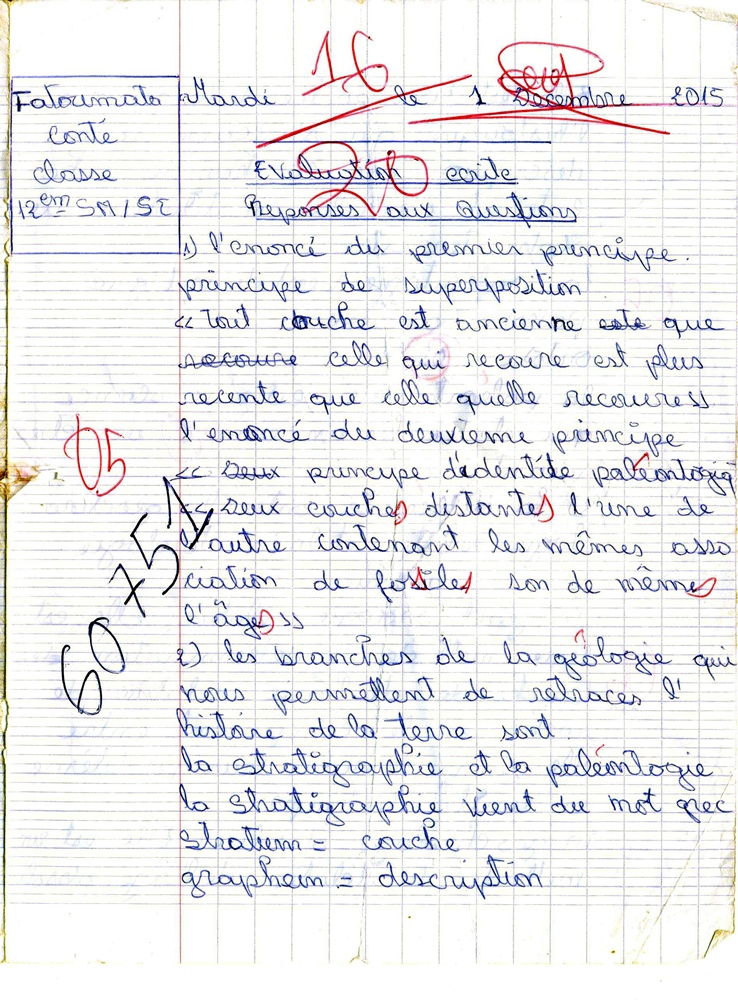 Fatoumata
conté
classe
12em SM/SE
Mardi le 1 Decembre 2015
16
20
Evaluation ecrite
Reponses aux Questions
1) l'enoncé du premier principe.
principe de superposition
<< Tout couche est ancienne que
celle qui recoure est plus
recente que celle quelle recoure>>
l'enoncé du deuxieme principe
<< principe d'identité paléontogiq
<< Deux couches distantes l'une de
l'autre contenant les mêmes asso
ciation de fosiles son de mêmes
l'âge>>
05
60+751
2) les branches de la géologie qui
nous permettent de retraces l'
histoire de la terre sont.
la stratigraphie et la paléontogie
la stratigraphie vient du mot grec
stratum = couche
graphein = description